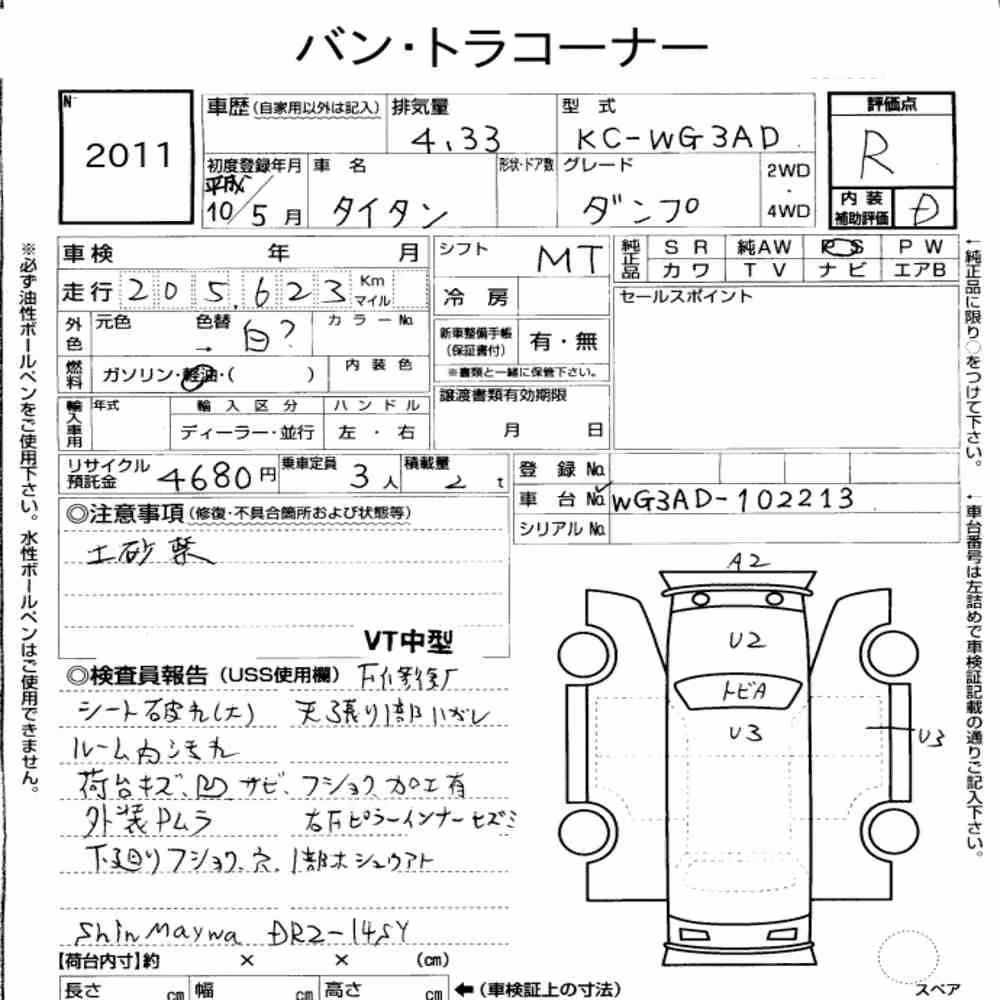 バン・トラコーナー
No
2011
車歴(自家用以外は記入)
排気量
4.33
型 式
KC-WG3AD
評価点
R
初度登録年月
平成
10/5月
車 名
タイタン
形状・ドア数
グレード
ダンプ
2WD
・
4WD
内 装
補助評価
D
※必ず油性ボールペンをご使用下さい。水性ボールペンはご使用できません。
車検 年 月
走行 205,623 Km マイル
外色
元色
色替
→ 白?
カラーNo
燃料
ガソリン・軽油・( )
内 装 色
輸入車用
年式
輸 入 区 分
ハ ン ド ル
ディーラー・並行
左 ・ 右
シフト
MT
冷 房
新車整備手帳
(保証書付)
有・無
※書類と一緒に保管下さい。
譲渡書類有効期限
月 日
純正品
S R
純AW
P S
P W
カ ワ
T V
ナ ビ
エアB
セールスポイント
←純正品に限り○をつけて下さい。
リサイクル
預託金
4680円
乗車定員
3人
積載量
2 t
登 録 No
車 台 No
WG3AD-102213
シリアルNo
←車台番号は左詰めで車検証記載の通りご記入下さい。
◎注意事項(修復・不具合箇所および状態等)
土砂禁
VT中型
◎検査員報告(USS使用欄)
シート破れ(大) 天張り1部ハガレ
ルーム内汚れ
荷台キズ、凹 サビ、フショク 加工有
外装Pムラ
右Fピラーインナーヒズミ
下廻りフショク、穴、1部ホシュウアト
ShinMaywa DR2-14SY
A2
U2
トビA
U3
U3
【荷台内寸】約 × × (cm)
長さ cm
幅 cm
高さ cm
←(車検証上の寸法)
スペア